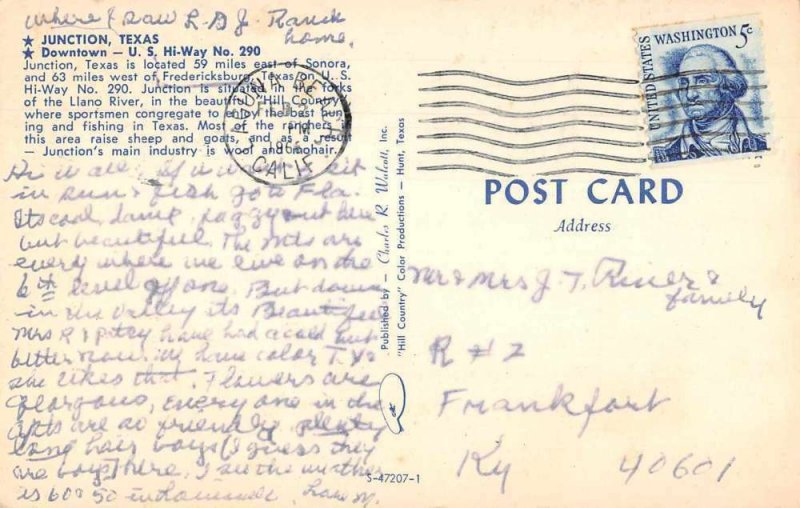 where I saw L.B.J. Ranch
home.
★ JUNCTION, TEXAS
★ Downtown — U. S. Hi-Way No. 290
Junction, Texas is located 59 miles east of Sonora,
and 63 miles west of Fredericksburg, Texas on U. S.
Hi-Way No. 290. Junction is situated in the forks
of the Llano River, in the beautiful "Hill Country"
where sportsmen congregate to enjoy the best hun-
ing and fishing in Texas. Most of the ranchers in
this area raise sheep and goats, and as a result
— Junction's main industry is wool and mohair.
CALIF
Hi all,
in sun & fish you Fla.
Its cool, damp, foggy out here
but beautiful. The Mts are
every where we live on the
6th level of one. But down
in the valley its Beautiful
Mrs R & have had a cold but
better now. We have color T.V.
she likes that. Flowers are
glorgous, every one in the
apts are so friendly plenty
long hair boys (I guess they
are boys) here. I see the weather
is 60 & 50 in
Published by — Charles R. Wolcott, Inc.
"Hill Country" Color Productions — Hunt, Texas
S-47207-1
UNITED STATES
WASHINGTON 5c
POST CARD
Address
Mr & Mrs J. T. &
family
R # 2
Frankfort
Ky 40601